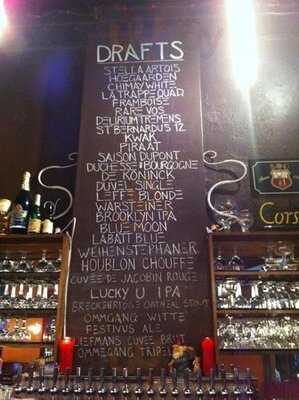 DRAFTS
STELLA ARTOIS
HOEGAARDEN
CHIMAY WHITE
LA TRAPPE QUAD
FRAMBOISE
RARE VOS
DELIRIUM TREMENS
ST BERNARDUS 12
KWAK
PIRAAT
SAISON DUPONT
DUCHESSE BOURGOGNE
DE KONINCK
DUVEL SINGLE
LEFFE BLONDE
WARSTEINER
BROOKLYN IPA
BLUE MOON
LABATT BLUE
WEIHENSTEPHANER
HOUBLON CHOUFFE
CUVEE DE JACOBIN ROUGE
LUCKY U IPA
OATMEAL STOUT
OMMGANG WITTE
FESTIVUS ALE
LIEFMANS CUVEE BRUT
OMMEGANG TRIPEL
Cors